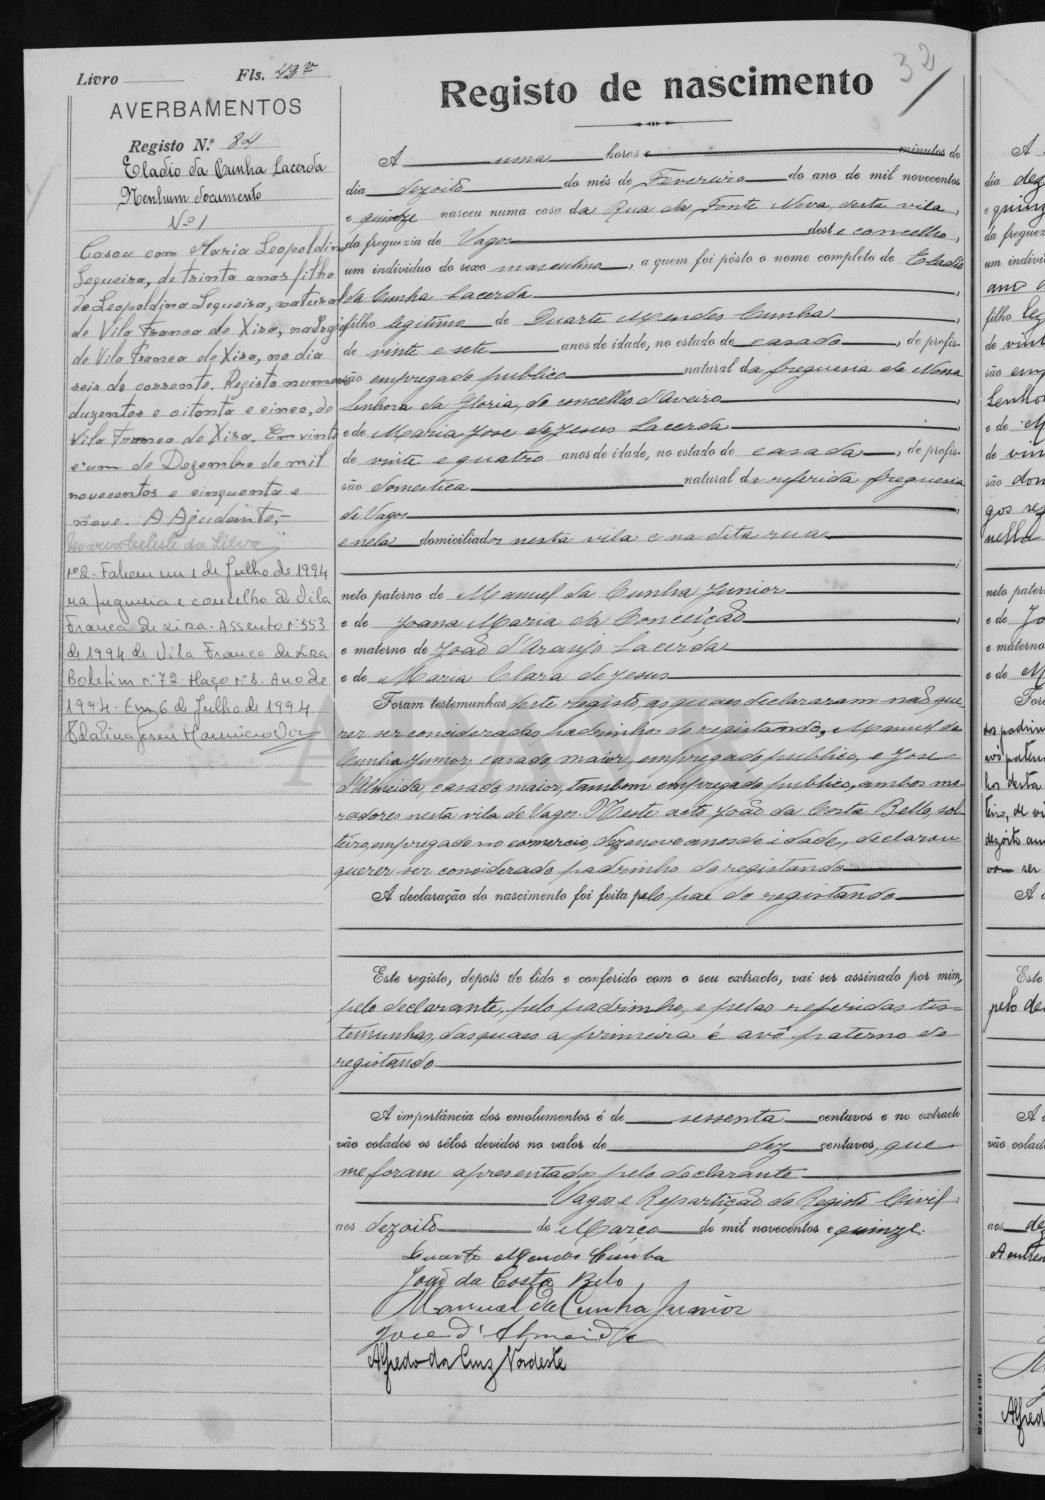 Livro Fls. 43v
32
AVERBAMENTOS
Registo N.º 84
Eladio da Cunha Lacerda
Nenhum documento
Nº 1
Casou com Maria Leopoldina
Sequeira, de trinta anos, filha
de Leopoldina Sequeira, natural
de Vila Franca de Xira, na
de Vila Franca de Xira, no dia
seis do corrente. Registo numero
duzentos e oitenta e cinco, de
Vila Franca de Xira. Em vinte
e um de Dezembro de mil
novecentos e cinquenta e
nove. A Ajudante,
Celeste da Silva
nº 2 - Faleceu em 1 de Julho de 1994
na freguesia e concelho de Vila
Franca de Xira. Assento nº 553
de 1994 de Vila Franca de Xira
Boletim nº 72 Maço nº 8. Ano de
1994. Em 6 de Julho de 1994
Registo de nascimento
A uma horas e minutos do
dia dezoito do mês de Fevereiro do ano de mil novecentos
e quinze nasceu numa casa da Rua da Fonte Nova, desta vila,
da freguezia de Vagos deste concelho,
um individuo do sexo masculino, a quem foi pôsto o nome completo de Eladio
da Cunha Lacerda
filho legitimo de Duarte Mendes Cunha,
de vinte e sete anos de idade, no estado de casado, de profis-
são empregado publico natural da freguesia de Nossa
Senhora da Gloria, do concelho d'Aveiro
e de Maria Jose de Jesus Lacerda
de vinte e quatro anos de idade, no estado de casada, de profis-
são domestica natural da referida freguesia
de Vagos
e nela domiciliados nesta vila e na dita rua
neto paterno de Manuel da Cunha Junior
e de Joana Maria da Conceição
e materno de João d'Araujo Lacerda
e de Maria Clara de Jesus
Foram testemunhas deste registo, as quaes declararam não que-
rer ser consideradas padrinhos do registando, Manuel da
Cunha Junior, casado, maior, empregado publico, e José
d'Almeida, casado, maior, tambem empregado publico, ambos mo-
radores nesta vila de Vagos. Neste acto João da Costa Bello, sol-
teiro, empregado no comercio, dezenove anos de idade, declarou
querer ser considerado padrinho do registando
A declaração do nascimento foi feita pelo pae do registando
Este registo, depois de lido e conferido com o seu extracto, vai ser assinado por mim,
pelo declarante, pelo padrinho, e pelas referidas tes-
temunhas, das quaes a primeira é avô paterno do
registando
A importância dos emolumentos é de sessenta centavos e no extracto
vão colados os sêlos devidos no valor de dez centavos, que
me foram apresentados pelo declarante
Vagos e Repartição do Registo Civil,
aos dezoito de Março de mil novecentos e quinze.
Duarte Mendes Cunha
João da Costa Belo
Manuel da Cunha Junior
José d'Almeida
Alfredo da Cruz Nordeste
ADAVR
Modelo 101